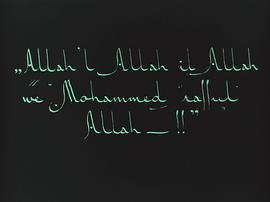 „Allah 'l Allah il Allah
we Mohammed rassul
Allah — !!”